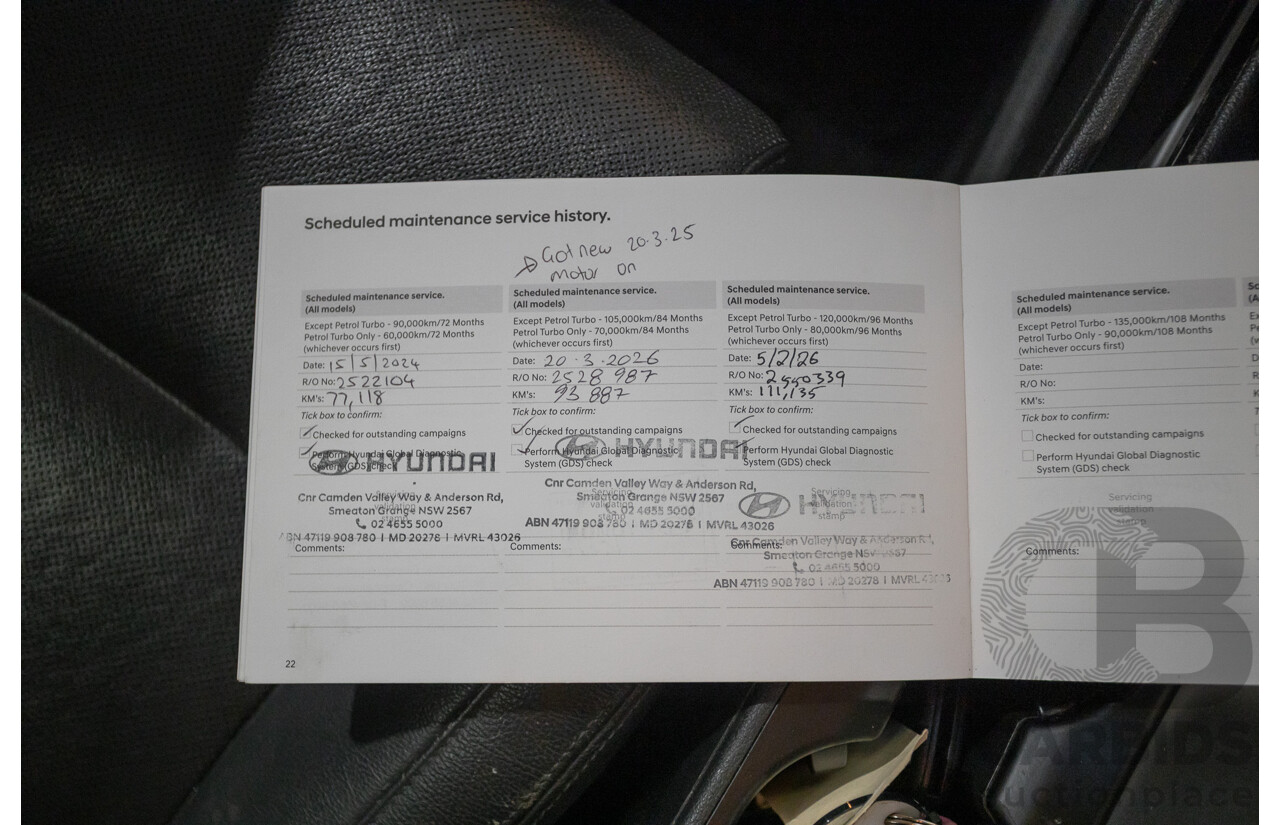 Scheduled maintenance service history.
Got new 20.3.25
motor on
Scheduled maintenance service.
(All models)
Except Petrol Turbo - 90,000km/72 Months
Petrol Turbo Only - 60,000km/72 Months
(whichever occurs first)
Date: 15/5/2024
R/O No: 2522104
KM's: 77,118
Tick box to confirm:
Checked for outstanding campaigns
Perform Hyundai Global Diagnostic
System (GDS) check
HYUNDAI
Cnr Camden Valley Way & Anderson Rd,
Smeaton Grange NSW 2567
02 4655 5000
ABN 47119 908 780 | MD 20276 | MVRL 43026
Servicing
validation
stamp
Comments:
Scheduled maintenance service.
(All models)
Except Petrol Turbo - 105,000km/84 Months
Petrol Turbo Only - 70,000km/84 Months
(whichever occurs first)
Date: 20.3.2026
R/O No: 2528 987
KM's: 93 887
Tick box to confirm:
Checked for outstanding campaigns
Perform Hyundai Global Diagnostic
System (GDS) check
HYUNDAI
Cnr Camden Valley Way & Anderson Rd,
Smeaton Grange NSW 2567
02 4655 5000
ABN 47119 908 780 | MD 20276 | MVRL 43026
Servicing
validation
stamp
Comments:
Scheduled maintenance service.
(All models)
Except Petrol Turbo - 120,000km/96 Months
Petrol Turbo Only - 80,000km/96 Months
(whichever occurs first)
Date: 5/2/26
R/O No: 2540339
KM's: 111,135
Tick box to confirm:
Checked for outstanding campaigns
Perform Hyundai Global Diagnostic
System (GDS) check
Servicing
validation
stamp
HYUNDAI
Comments:
Cnr Camden Valley Way & Anderson Rd,
Smeaton Grange NSW 2567
02 4655 5000
ABN 47119 908 780 | MD 20276 | MVRL
22
Scheduled maintenance service.
(All models)
Except Petrol Turbo - 135,000km/108 Months
Petrol Turbo Only - 90,000km/108 Months
(whichever occurs first)
Date:
R/O No:
KM's:
Tick box to confirm:
Checked for outstanding campaigns
Perform Hyundai Global Diagnostic
System (GDS) check
Servicing
validation
stamp
Comments: